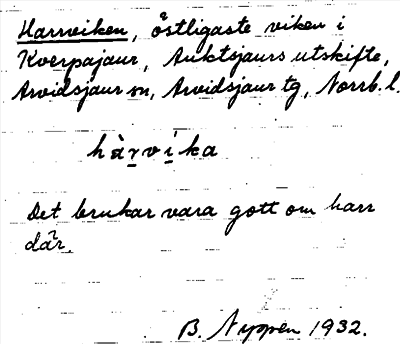 Harrviken, östligaste viken i
Kverpajaur, Auktsjaurs utskifte,
Arvidsjaur sn, Arvidsjaur tg, Norrb. l.
hàrvika
Det brukar vara gott om harr
där.
B. Nyppen 1932.